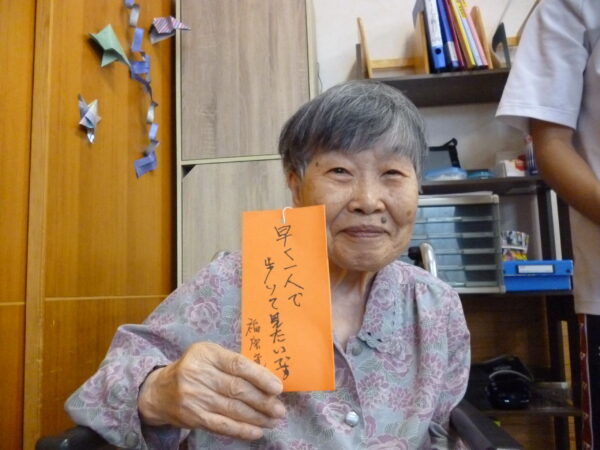 早く一人で
歩いて見たいです
福原